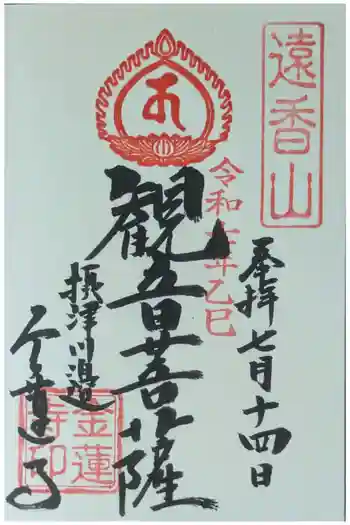 遠香山
奉拝七月十四日
令和七年乙巳
観音菩薩
摂津川邉
金蓮寺
金蓮寺印